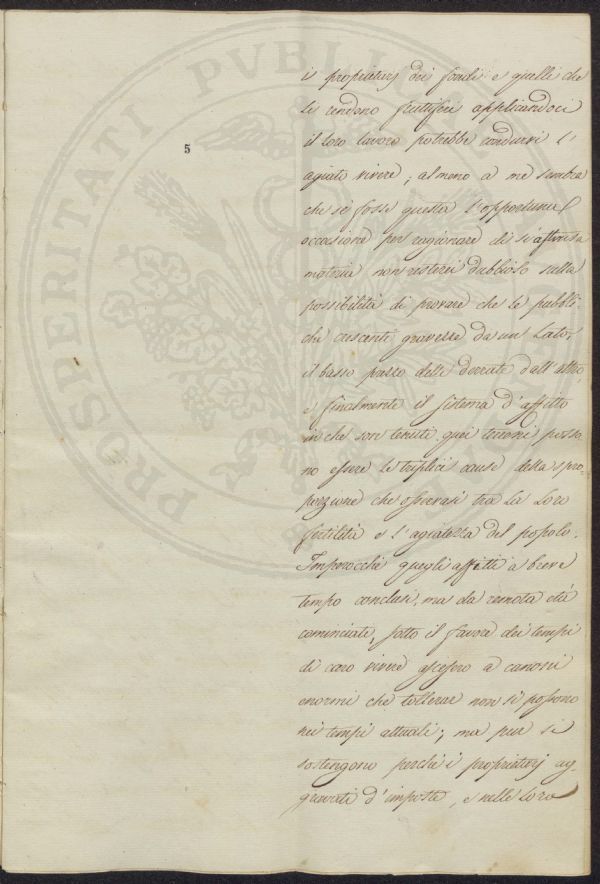 5
i proprietarj dei fondi e quelli che
li rendono fruttiferi applicandoci
il loro lavoro potrebbe condursi l'
agiato vivere; almeno a me sembra
che se fosse questa l'opportuna
occasione per ragionare di sì
materia non resterei dubbioso sulla
possibilità di provare che le pubbli-
che crescenti gravezze da un lato,
il basso prezzo delle derrate dall'altro
e finalmente il sistema d'affitto
in che son tenuti quei terreni posso-
no essere le triplici cause della spro-
porzione che osservasi tra la loro
fertilità e l'agiatezza del popolo.
Imperocchè quegli affitti a breve
tempo conclusi, ma da remota età
cominciati, sotto il favore dei tempi
di caro vivere ascesero a canoni
enormi che tollerar non si possono
nei tempi attuali; ma pur si
sostengono perchè i proprietarj ag-
gravati d'imposte, e nelle loro
PROSPERITATI PVBLICAE